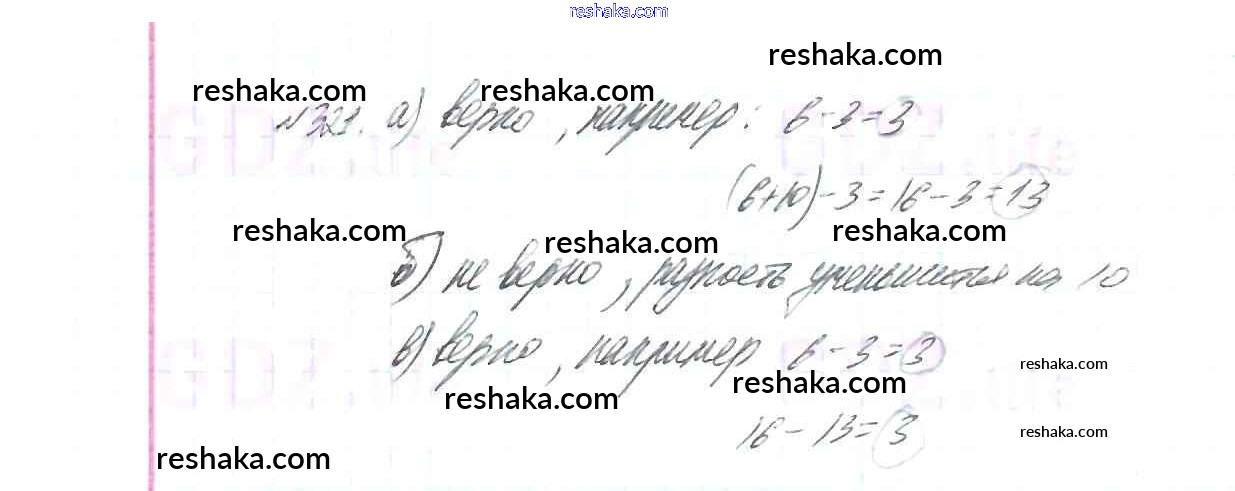 reshaka.com
reshaka.com
reshaka.com reshaka.com
№321. а) верно, например: 6-3=3
(6+10)-3=16-3=13
reshaka.com reshaka.com reshaka.com
б) не верно, разность уменьшится на 10
в) верно, например 6-3=3
reshaka.com
reshaka.com reshaka.com
16-13=3
reshaka.com
reshaka.com